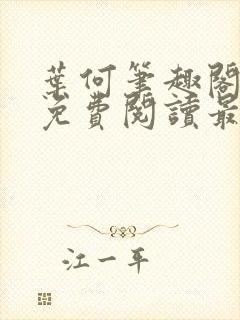 葉何筆趣閣
免費閱讀最
江一平